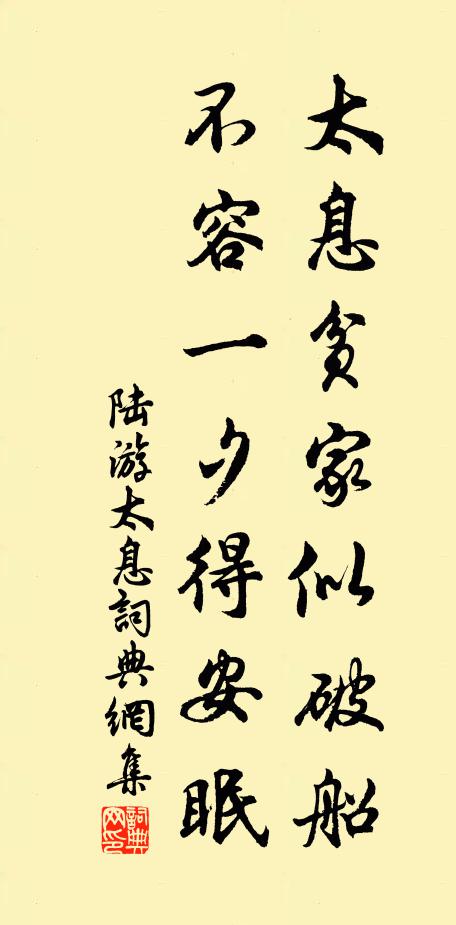 太息貧家似破船
不容一夕得安眠
陆游太息詞典網集
詞典
网印